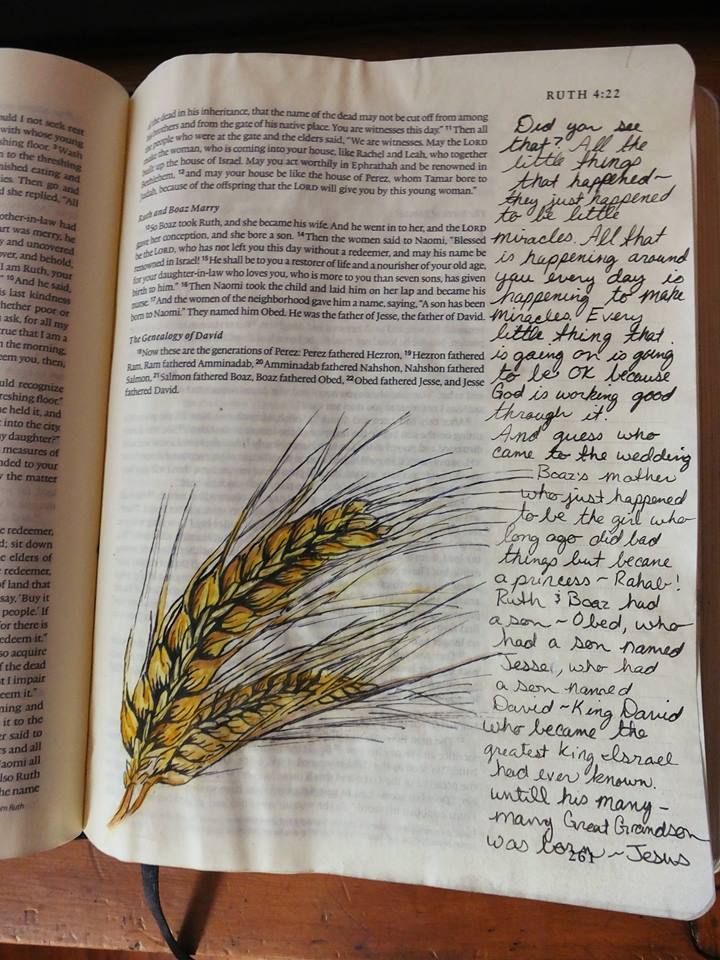 ould I not seek rest
with whose young
shing floor. 3 Wash
n to the threshing
nished eating and
ies. Then go and
d she replied, "All
other-in-law had
art was merry, he
y and uncovered
over, and behold,
I am Ruth, your
" 10 And he said,
is last kindness
hether poor or
ask, for all my
true that I am a
n the morning,
eem you, then,
uld recognize
reshing floor."
e held it, and
t into the city.
y daughter?"
measures of
nded to your
w the matter
e redeemer,
d; sit down
e elders of
redeemer,
of land that
say, 'Buy it
people.' If
or there is
edeem it."
so acquire
f the dead
st I impair
eem it."
ning and
it to the
er said to
rs and all
aomi all
lso Ruth
he name
m Ruth
RUTH 4:22
the dead in his inheritance, that the name of the dead may not be cut off from among
brothers and from the gate of his native place. You are witnesses this day." 11 Then all
people who were at the gate and the elders said, "We are witnesses. May the LORD
make the woman, who is coming into your house, like Rachel and Leah, who together
built up the house of Israel. May you act worthily in Ephrathah and be renowned in
Bethlehem, 12 and may your house be like the house of Perez, whom Tamar bore to
Judah, because of the offspring that the LORD will give you by this young woman."
Ruth and Boaz Marry
13 So Boaz took Ruth, and she became his wife. And he went in to her, and the LORD
gave her conception, and she bore a son. 14 Then the women said to Naomi, "Blessed
be the LORD, who has not left you this day without a redeemer, and may his name be
renowned in Israel! 15 He shall be to you a restorer of life and a nourisher of your old age,
for your daughter-in-law who loves you, who is more to you than seven sons, has given
birth to him." 16 Then Naomi took the child and laid him on her lap and became his
nurse. 17 And the women of the neighborhood gave him a name, saying, "A son has been
born to Naomi." They named him Obed. He was the father of Jesse, the father of David.
The Genealogy of David
18 Now these are the generations of Perez: Perez fathered Hezron, 19 Hezron fathered
Ram, Ram fathered Amminadab, 20 Amminadab fathered Nahshon, Nahshon fathered
Salmon, 21 Salmon fathered Boaz, Boaz fathered Obed, 22 Obed fathered Jesse, and Jesse
fathered David.
Did you see
that? All the
little things
that happened~
they just happened
to be little
miracles. All that
is happening around
you every day is
happening to make
miracles. Every
little thing that
is going on is going
to be OK because
God is working good
through it.
And guess who
came to the wedding
Boaz's mother
who just happened
to be the girl who
long ago did bad
things but became
a princess ~ Rahab!
Ruth & Boaz had
a son ~ Obed, who
had a son named
Jesse, who had
a son named
David ~ King David
who became the
greatest King Israel
had ever known.
untill his many-
many Great Grandson
was born ~ Jesus
261